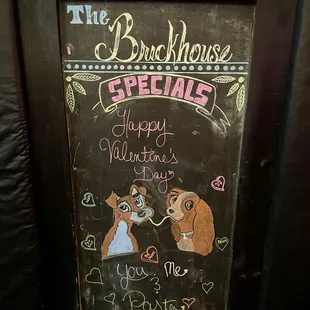 The
Brickhouse
SPECIALS
Happy
Valentine's
Day
You & Me
Pasta